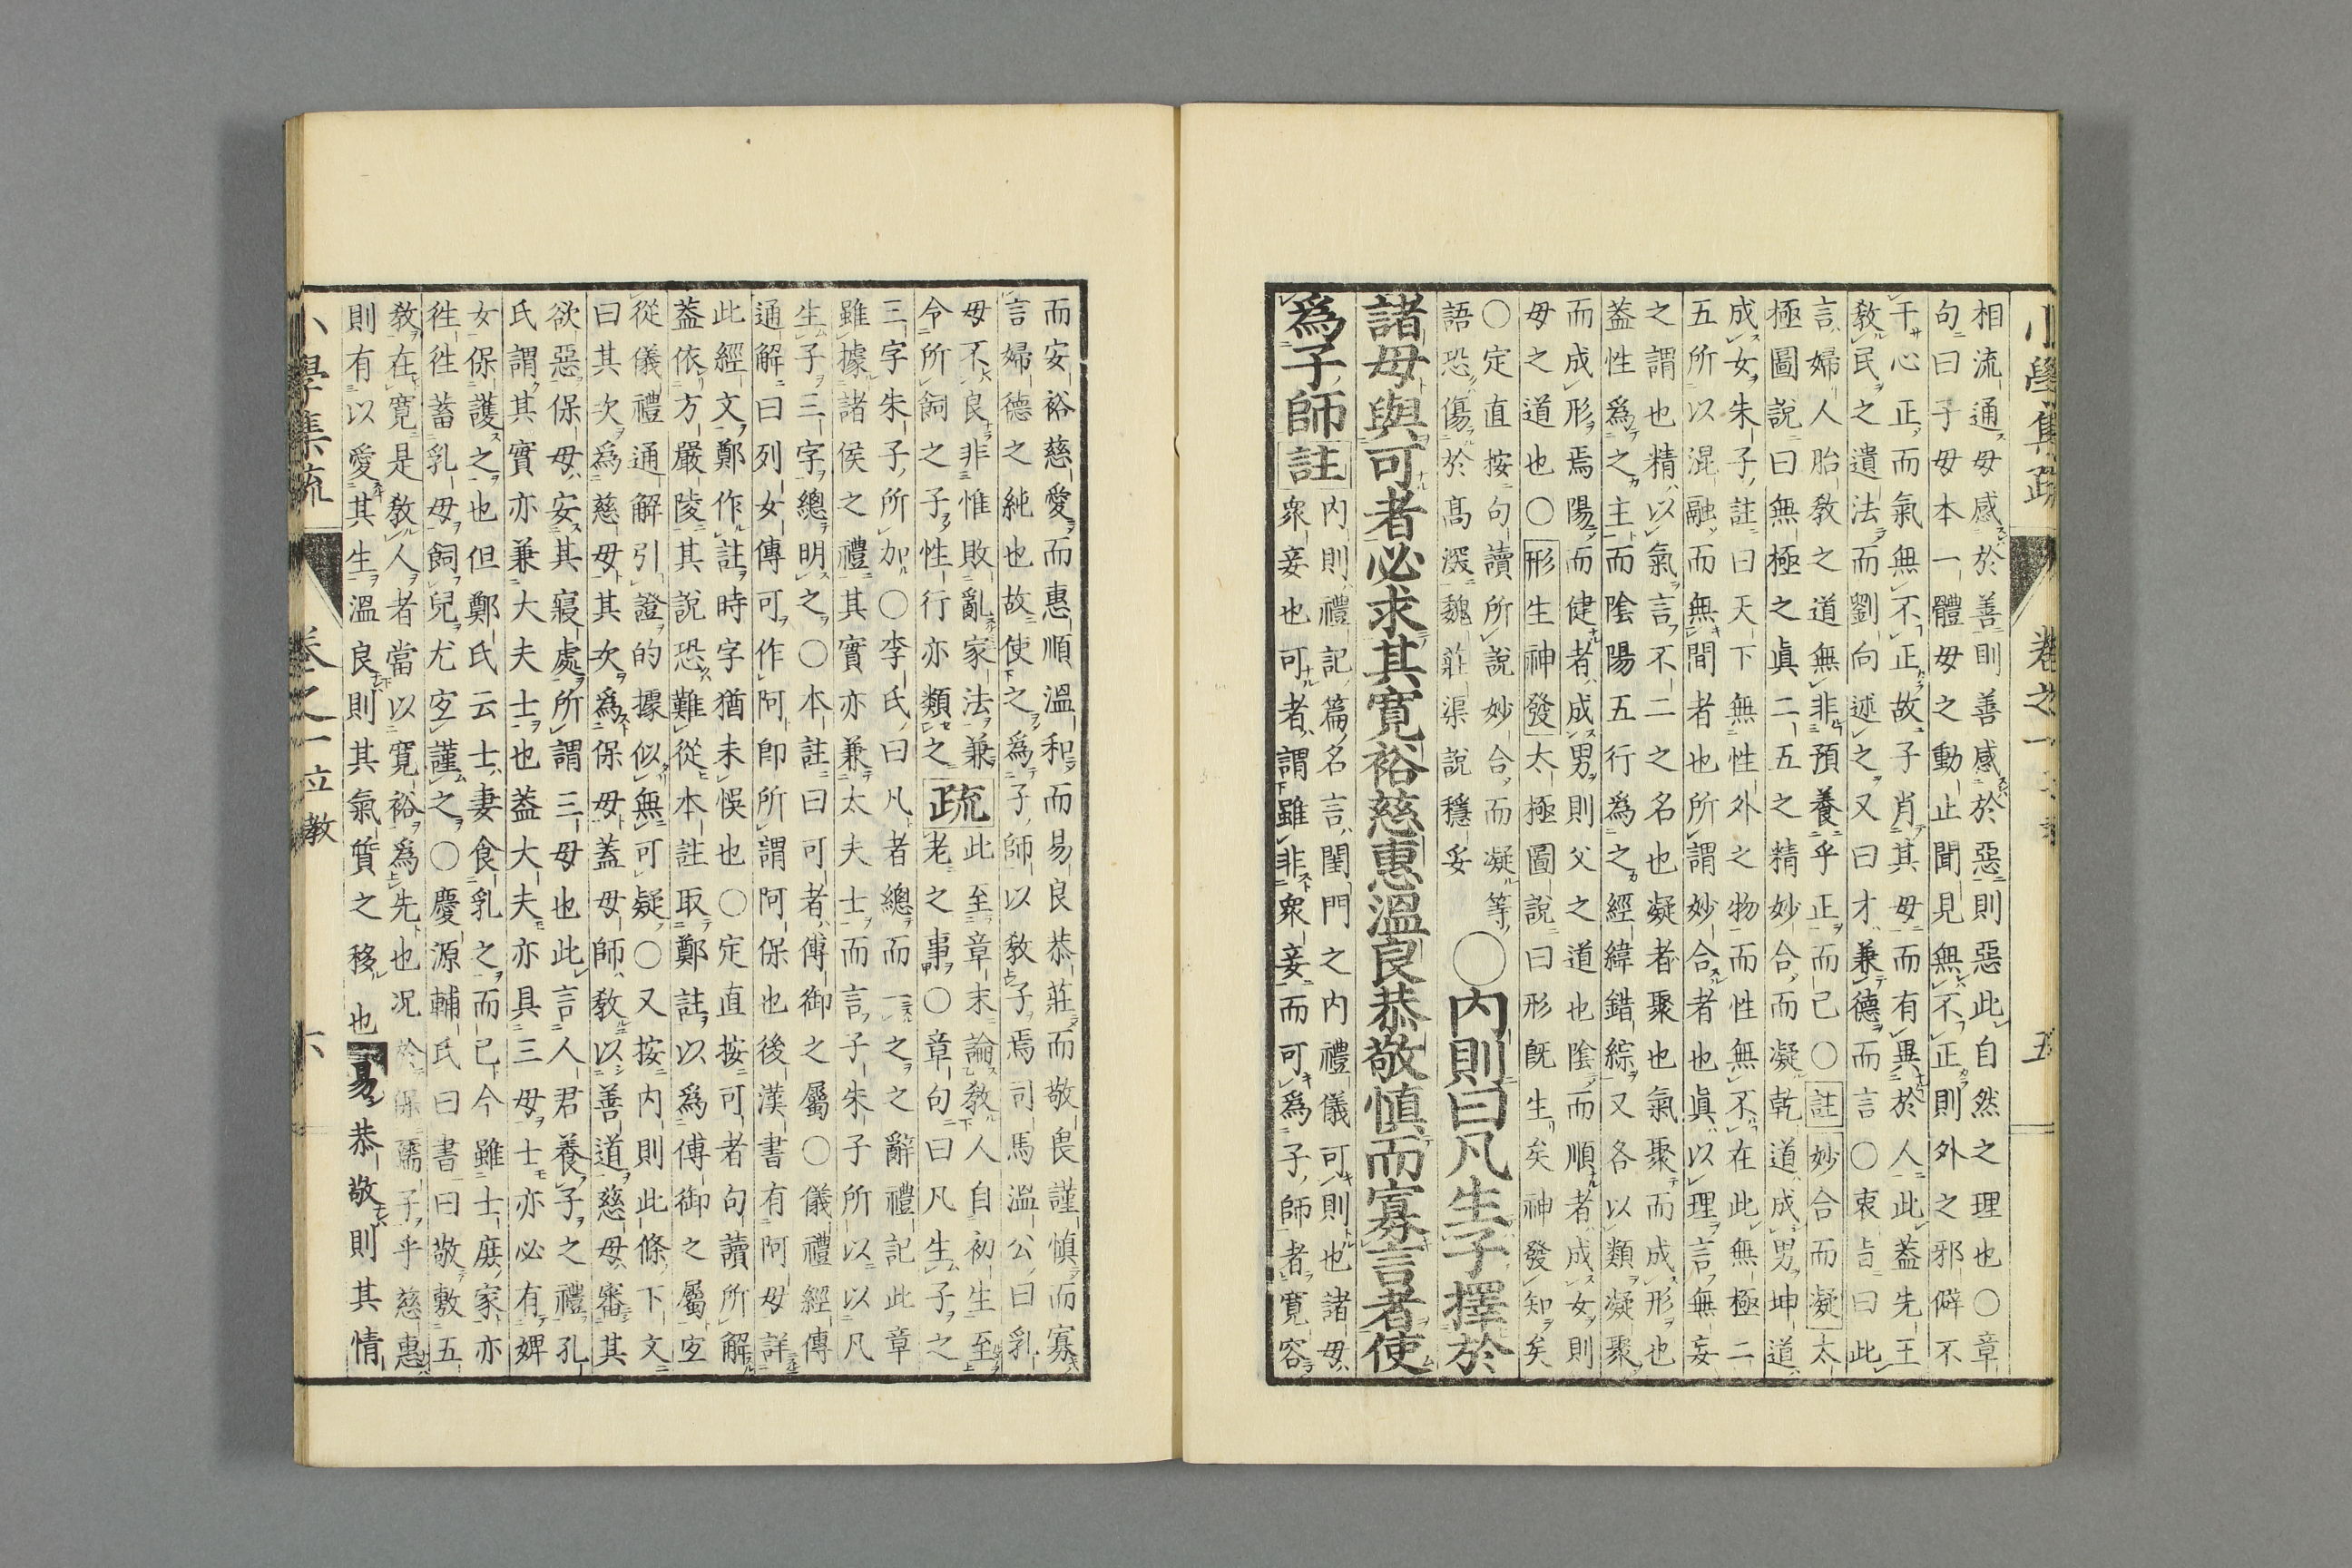 小學集疏 卷之一 五
相流通母感於善則善感於惡則惡此自然之理也○章
句曰子母本一體母之動止聞見無不正則外之邪僻不
干心正而氣無不正故子肖其母而有異於人此蓋先王
敎民之遺法而劉向述之又曰才兼德而言○衷旨曰此
言婦人胎敎之道無非預養乎正而已○註妙合而凝太
極圖說曰無極之眞二五之精妙合而凝乾道成男坤道
成女朱子註曰天下無性外之物而性無不在此無極二
五所以混融而無間者也所謂妙合者也眞以理言無妄
之謂也精以氣言不二之名也凝者聚也氣聚而成形也
蓋性爲之主而陰陽五行爲之經緯錯綜又各以類凝聚
而成形焉陽而健者成男則父之道也陰而順者成女則
母之道也○形生神發太極圖說曰形旣生矣神發知矣
○定直按句讀所說妙合而凝等
語恐傷於髙深魏莊渠說穩妥
○内則曰凡生子擇於
諸母與可者必求其寛裕慈惠溫良恭敬愼而寡言者使
爲子師註
内則禮記篇名言閨門之内禮儀可則也諸母
衆妾也可者謂雖非衆妾而可爲子師者寛容
而安裕慈愛而惠順溫和而易良恭莊而敬畏謹愼而寡
言婦德之純也故使之爲子師以敎子焉司馬溫公曰乳
母不良非惟敗亂家法兼
令所飼之子性行亦類之疏
此至章末論敎人自初生至
老之事○章句曰凡生子之
三字朱子所加○李氏曰凡者總而一之之辭禮記此章
雖據諸侯之禮其實亦兼太夫士而言子朱子所以以凡
生子三字總明之○本註曰可者傅御之屬○儀禮經傳
通解曰列女傳可作阿即所謂阿保也後漢書有阿母詳
此經文鄭作註時字猶未悞也○定直按可者句讀所解
蓋依方嚴陵其說恐難從本註取鄭註以爲傅御之屬宜
從儀禮通解引證的據似無可疑○又按内則此條下文
曰其次爲慈母其次爲保母蓋母師敎以善道慈母審其
欲惡保母安其寢處所謂三母也此言人君養子之禮孔
氏謂其實亦兼大夫士也蓋大夫亦具三母士亦必有婢
女保護之也但鄭氏云士妻食乳之而已今雖士庶家亦
徃徃蓄乳母飼兒尤宜謹之○慶源輔氏曰書曰敬敷五
敎在寛是敎人者當以寛裕爲先也况於保孺子乎慈惠
則有以愛其生溫良則其氣質之移也易恭敬則其情
小學集疏 卷之一 立敎 六